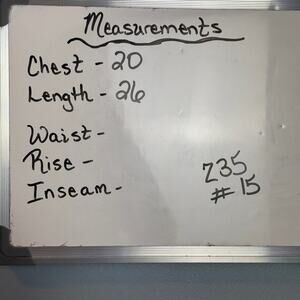 Measurements
Chest - 20
Length - 26
Waist -
Rise -
Inseam -
Z35
#15